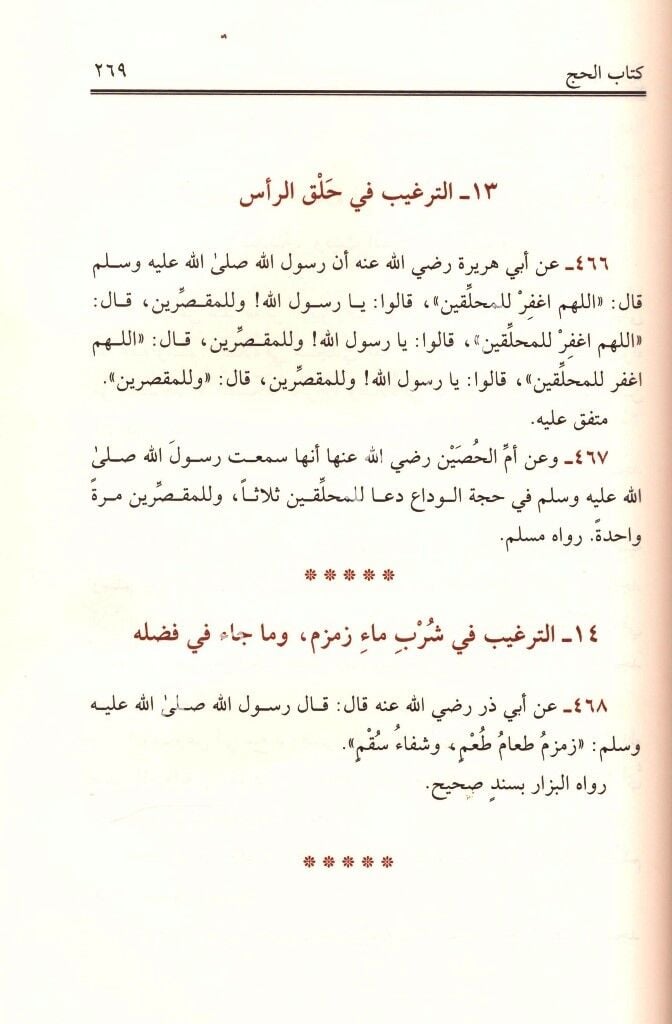 كتاب الحج ٢٦٩
١٣ـ الترغيب في حَلْق الرأس
٤٦٦ـ عن أبي هريرة رضي الله عنه أن رسول الله صلىٰ الله عليه وسلم
قال: «اللهم اغفِرْ للمحلِّقين»، قالوا: يا رسول الله! وللمقصِّرين، قال:
«اللهم اغفِرْ للمحلِّقين»، قالوا: يا رسول الله! وللمقصِّرين، قال: «اللهم
اغفر للمحلِّقين»، قالوا: يا رسول الله! وللمقصِّرين، قال: «وللمقصرين».
متفق عليه.
٤٦٧ـ وعن أمِّ الحُصَيْن رضي الله عنها أنها سمعت رسولَ الله صلىٰ
الله عليه وسلم في حجة الوداع دعا للمحلِّقين ثلاثاً، وللمقصِّرين مرةً
واحدةً. رواه مسلم.
١٤ـ الترغيب في شُرْبِ ماءِ زمزم، وما جاء في فضله
٤٦٨ـ عن أبي ذر رضي الله عنه قال: قال رسول الله صلىٰ الله عليه
وسلم: «زمزمُ طعامُ طُعْمٍ، وشفاءُ سُقْمٍ».
رواه البزار بسندٍ صحيح.